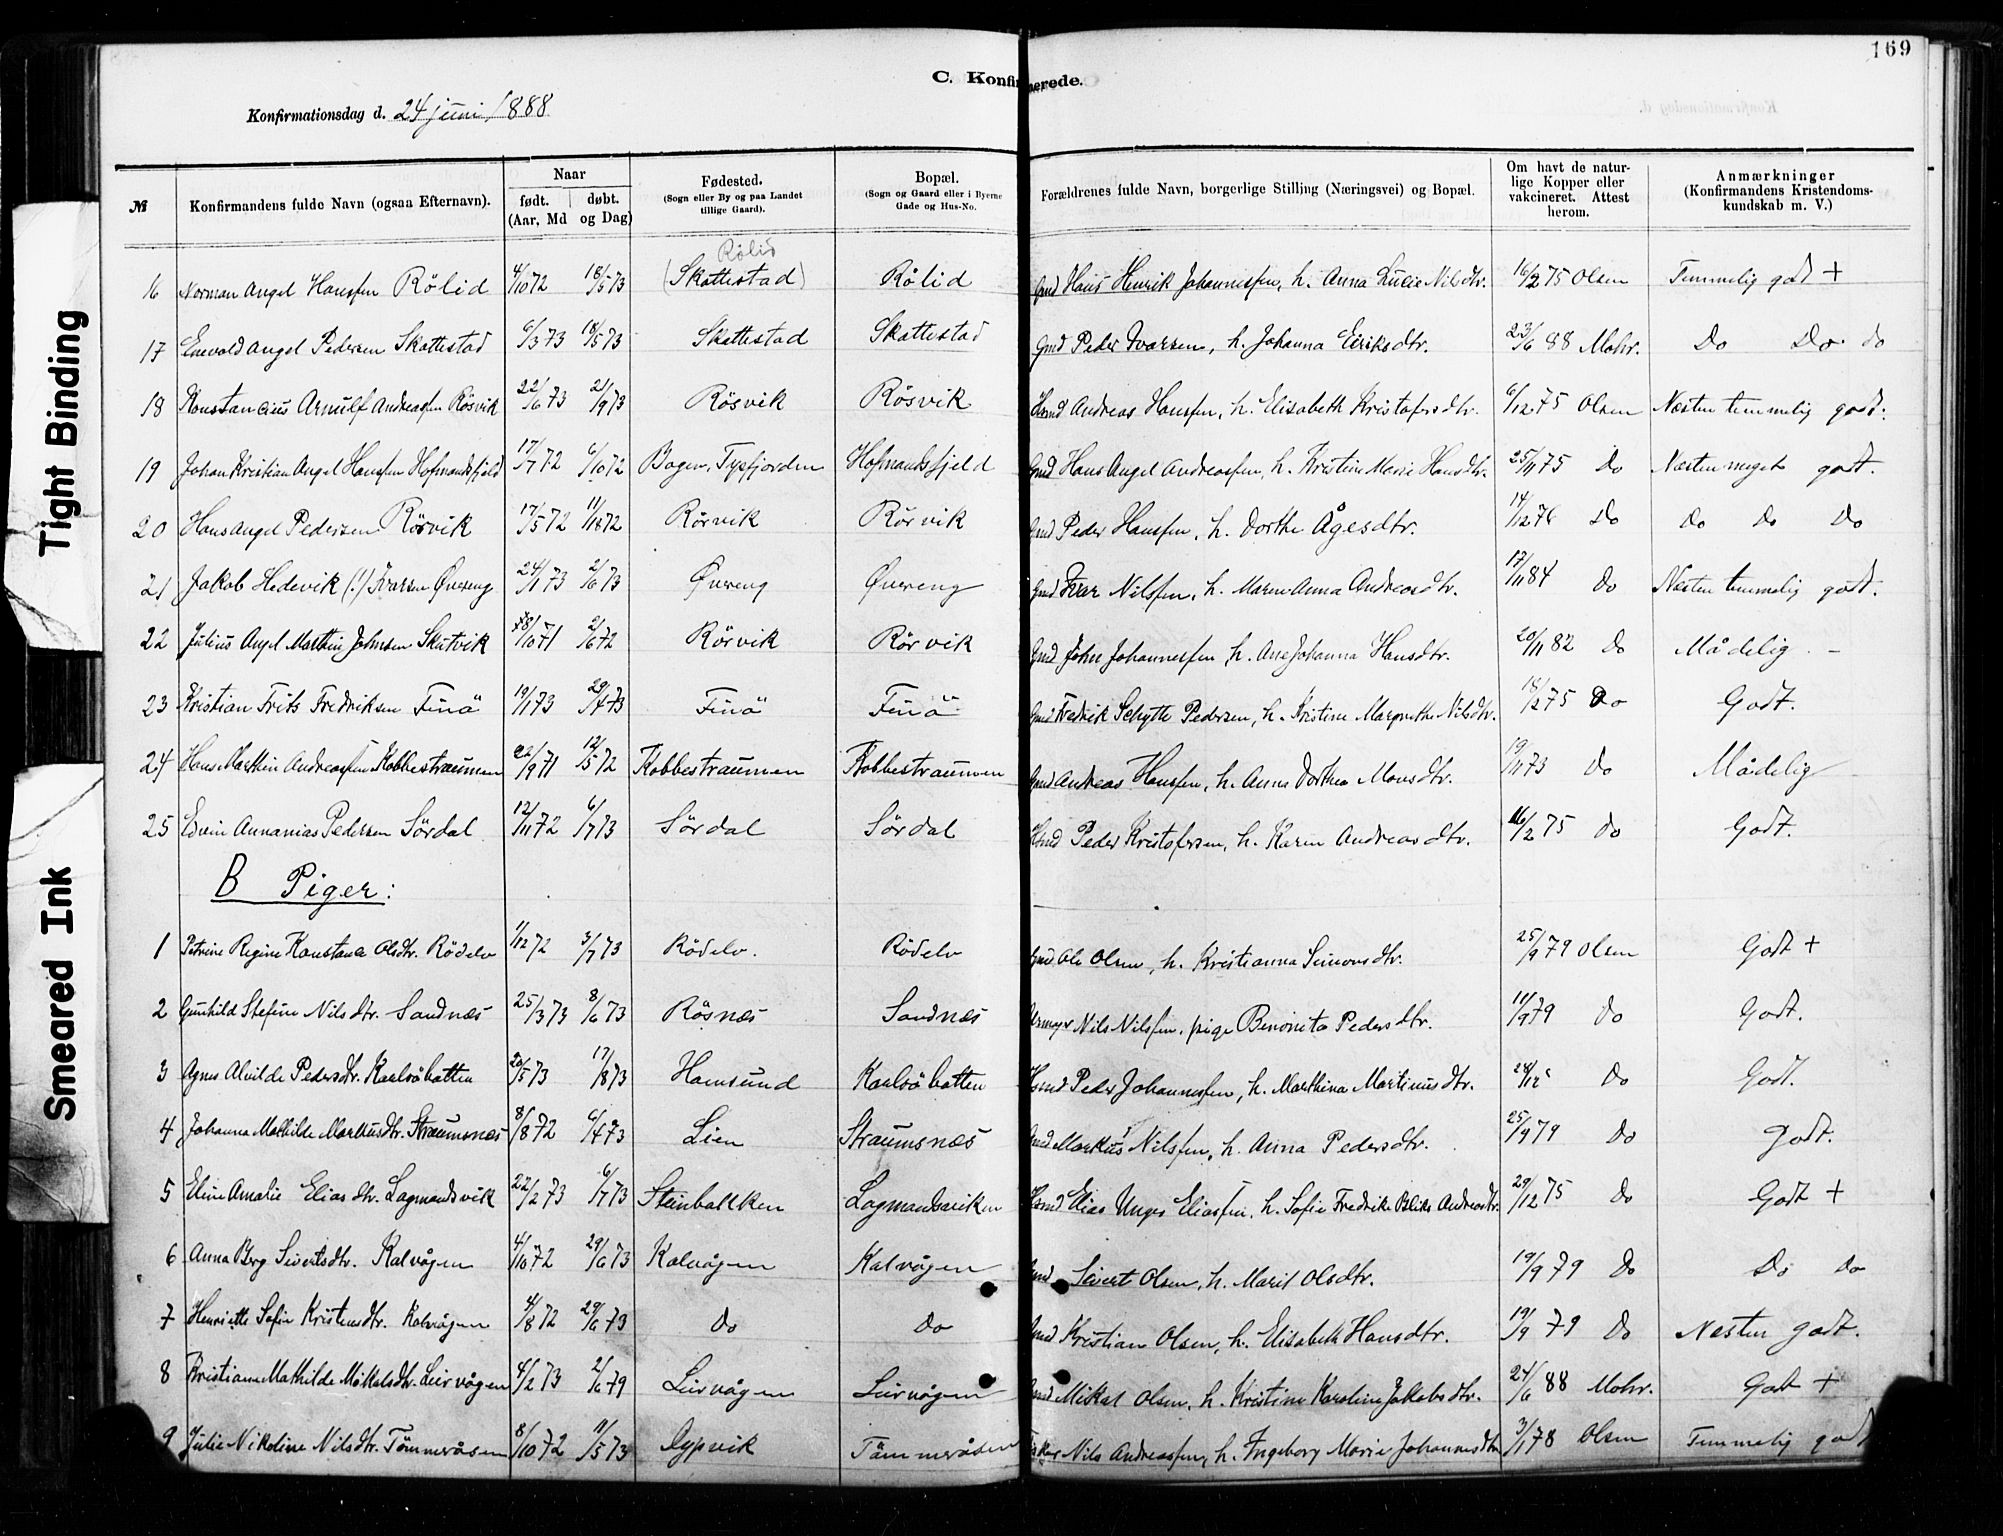 169
C. Konfirmerede.
Konfirmationsdag d. 24 juni 1888
№ Konfirmandens fulde Navn (ogsaa Efternavn). Naar født. (Aar, Md døbt. og Dag) Fødested. (Sogn eller By og paa Landet tillige Gaard). Bopæl. (Sogn og Gaard eller i Byerne Gade og Hus-No. Forældrenes fulde Navn, borgerlige Stilling (Næringsvei) og Bopæl. Om havt de naturlige Kopper eller vakcineret. Attest herom. Anmærkninger (Konfirmandens Kristendomskundskab m. V.)
Rölid
16 Norman Angel Hanssen Rölid 4/10 72 18/5 73 (Skottestad) Rölid Gmd Hans Henrik Johannessen, h. Anna Lucie Nilsdtr. 16/2 75 Olsen Temmelig godt +
17 Enevold Angel Pedersen Skottestad 6/3 73 18/5 73 Skottestad Skottestad Gmd Peder Ivarsen, h. Johanna Eriksdtr. 23/6 88 Mohr. Do Do do
18 Konstancius Arnulf Andreassen Rösvik 22/6 73 21/9 73 Rösvik Rösvik Hsmd Andreas Hanssen, h. Elisabeth Kristofersdtr. 6/12 75 Olsen Næsten temmelig godt.
19 Johan Kristian Angel Hanssen Hofmandsfjeld 17/7 72 6/10 72 Bogen, Tysfjorden Hofmandsfjeld Gmd Hans Angel Andreassen, h. Kristine Marie Hansdtr. 25/11 75 Do Næsten meget godt.
20 Hans Angel Pedersen Rörvik 17/5 72 11/8 72 Rörvik Rörvik Gmd Peder Hanssen, h. Dorthe Ågesdtr. 14/12 76 Do Do Do Do
21 Jakob Hedevik (!) Ivarsen Øvereng 24/1 73 2/6 73 Øvereng Øvereng Gmd Ivar Nilssen, h. Maren Anna Andreasdtr. 17/11 84 Do Næsten temmelig godt.
22 Julius Angel Marthin Johnsen Skutvik 28/10 71 2/6 72 Rörvik Rörvik Gmd John Johannessen h. Ane Johanna Hansdtr. 20/11 82 Do Mådelig. –
23 Kristian Frits Fredriksen Finö 19/1 73 29/4 73 Finö Finö Gmd Fredrik Schytte Pedersen, h. Kristine Margrethe Nilsdtr. 18/12 75 Do Godt.
24 Hans Marthin Andreassen Kobbestraumen 22/9 71 12/5 72 Kobbestraumen Kobbestraumen Gmd Andreas Hanssen, h. Anna Dorthea Monsdtr. 19/11 73 Do Mådelig
25 Edvin Annanias Pedersen Sördal 12/11 72 6/7 73 Sördal Sördal Hsmd Peder Kristofersen, h. Karen Andreasdtr. 16/2 75 Do Godt.
B Piger:
1 Petrine Regine Konstanse Olsdtr. Rödelv 1/12 72 3/7 73 Rödelv. Rödelv Gmd Ole Olsen, h. Kristianna Simonsdtr. 25/9 79 Olsen Godt +
2 Gunhild Stefine Nilsdtr. Sandnæs 25/3 73 8/6 73 Rösnæs Sandnæs Nils Nilssen, pige Benonita Pedersdtr. 11/9 79 Do Godt.
3 Agnes Alvilde Pedersdtr. Karlsöhatten 20/5 73 17/8 73 Hamsund Karlsöhatten Hsmd Peder Johannessen, h. Marthina Martinusdtr. 28/12 Do Godt.
4 Johanna Mathilde Markusdtr. Straumsnæs 8/8 72 6/4 73 Lien Straumsnæs Gmd Markus Nilssen, h. Anna Pedersdtr. 25/9 79 Do Godt.
5 Eline Amalie Eliasdtr. Lagmandsvik 22/2 73 6/7 73 Steinbakken Lagmandsviken Hsmd Elias Unges Eliassen, h. Sofie Fredrike Bliks Andreasdtr. 29/12 75 Do Godt +
6 Anna Berg Sivertsdtr. Kalvågen 4/10 72 29/6 73 Kalvågen Kalvågen Gmd Sivert Olsen, h. Marit Olsdtr. 19/9 79 Do Do Do
7 Henriette Sofie Kristensdtr. Kalvågen 4/8 72 29/6 73 Do Do Gmd Kristian Olsen, h. Elisabeth Hansdtr. 19/9 79 Do Næsten godt.
8 Kristiane Mathilde Mikalsdtr. Leirvågen 4/2 73 2/6 79 Leirvågen Leirvågen Gmd Mikal Olsen, h. Kristine Karoline Jakobsdtr. 24/6 88 Mohr. Godt +
9 Julie Nikoline Nilsdtr. Tömmeråsen 8/10 72 11/5 73 Dypvik Tömmeråsen Nils Andreassen, h. Ingeborg Marie Johannesdtr 3/1 78 Olsen Temmelig godt
Tight Binding
Smeared Ink